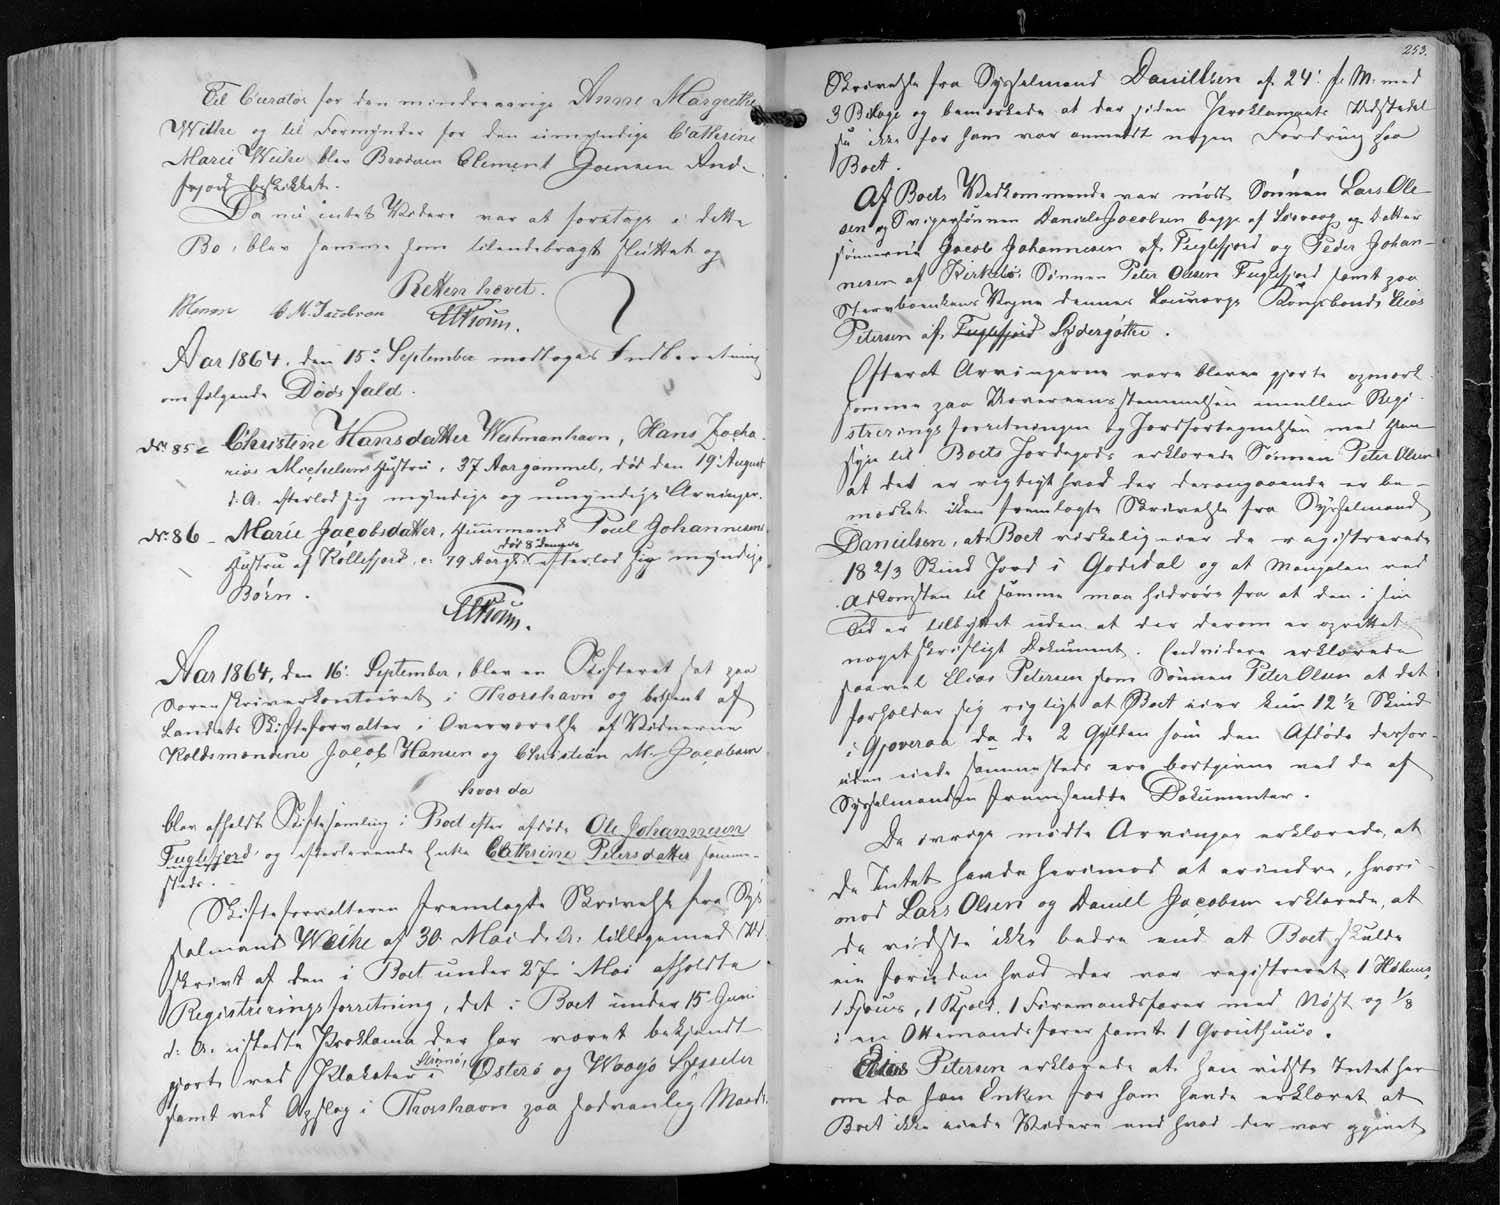 Til Curator for den mindreaarige Anne Margrethe
Weihe og til Formynder for den umyndige Cathrine
Marie Weihe blev Broderen Clement Joensen Ande-
fjord beskikket.
Da nu intet Videre var at foretage i dette
Bo, blev samme som tilendebragt sluttet og
Retten hævet.
C M. Jacobsen HTroum.
Aar 1864, den 15de September modtoges Indberetning
om følgende Dødsfald.
No. 85 - Christine Hansdatter Westmanhavn, Hans Zacha-
rias Michelsens Hustru, 37 Aar gammel, død den 19 August
d: A. efterlod sig myndige og umyndige Arvinger.
No. 86 - Marie Jacobsdatter, Huusmand Poul Johannesens
død 8 dennes
Hustru af Kollefjord, c: 79 Aar gl. efterlod sig myndige
Børn.
Aar 1864, den 16: September, blev en Skifteret sat paa
Sorenskriverkontoiret i Thorshavn og betjent af
Landets Skifteforvalter i Overværelse af Vidnerne
Koldsmændene Jacob Hansen og Christian M. Jacobsen
hvor da
blev afholdt Skiftesamling i Boet efter afdøde Ole Johannesen
Fuglefjord og efterlevende Enke Cathrine Petersdatter samme-
steds.
Skifteforvalteren fremlagte Skrivelse fra Sys-
selmand Weihe af 30 Mai d. A. tilligemed Ud-
skrivt af den i Boet under 27 Mai afholdte
Registreringsforretning, det i Boet under 15 Juni
d: A. udstedte Proklama der har været bekjendt-
Strømø,
gjort ved Plakater i Østerø og Waagø Sysseler
samt ved Opslag i Thorshavn paa sædvanlig Maade.
253.
Skrivelse fra Sysselmand Danielsen af 24: f. M. med
3 Bilage og bemærkede at der siden Proklamaets Udstedelse
ikke for ham var anmeldt nogen Fordring paa
Boet.
Af Boets Vedkommende var mødt Sønnen Lars Ole-
sen og Svigersønnen Daniel Jacobsen begge af og Datter-
sønnerne Jacob Johannesen af Fuglefjord og Peder Johan-
nesen af Sønnen Peter Olsen Fuglefjord samt paa
Stervboenkens Vegne dennes Laugværge Kongsbonde Elias
Petersen af Fuglefjord Sydergøthe.
Efterat Arvingerne vare blevne gjorte opmærk-
somme paa Uoverensstemmelsen imellem Regi-
streringsforretningen og Jordfortegnelsen med Hen-
syn til Boets Jordegods erklærede Sønnen Peter Olsen
at det er rigtigt hvad der derom er be-
mærket i den fremlagte Skrivelse fra Sysselmand
Danielsen, at Boet virkelig eier de registrerede
18 2/3 Skind Jord i Godedal og at Mangelen ved
Adkomsten til samme maa hidrøre fra at den i sin
Tid er tilbyttet uden at der derom er oprettet
noget skriftligt Dokument. Endvidere erklærede
saavel Elias Petersen som Sønnen Peter Olsen at det
forholder sig rigtigt at Boet eier kun 12 1/2 Skind
i Gjoveraa da de 2 Gylden som den Afdøde desfor-
uden eiede sammesteds ere bortgivne ved de af
Sysselmanden fremsendte Dokumenter.
De øvrige mødte Arvinger erklærede, at
de Intet havde herimod at erindre, hvori-
mod Lars Olsen og Daniel Jacobsen erklærede, at
de vidste ikke bedre end at Boet skulde
eie foruden hvad der var registreret 1 Høhuus,
1 Fjøuus, 1 Kjold, 1 Firemandsfarer med Nøst og 1/8
i en Ottemandsfarer samt 1 Grouthuus.
Elias Petersen erklærede at han vidste Intet her-
om da han Enken for ham havde erklæret at
Boet ikke eiede Videre end hvad der var opgivet